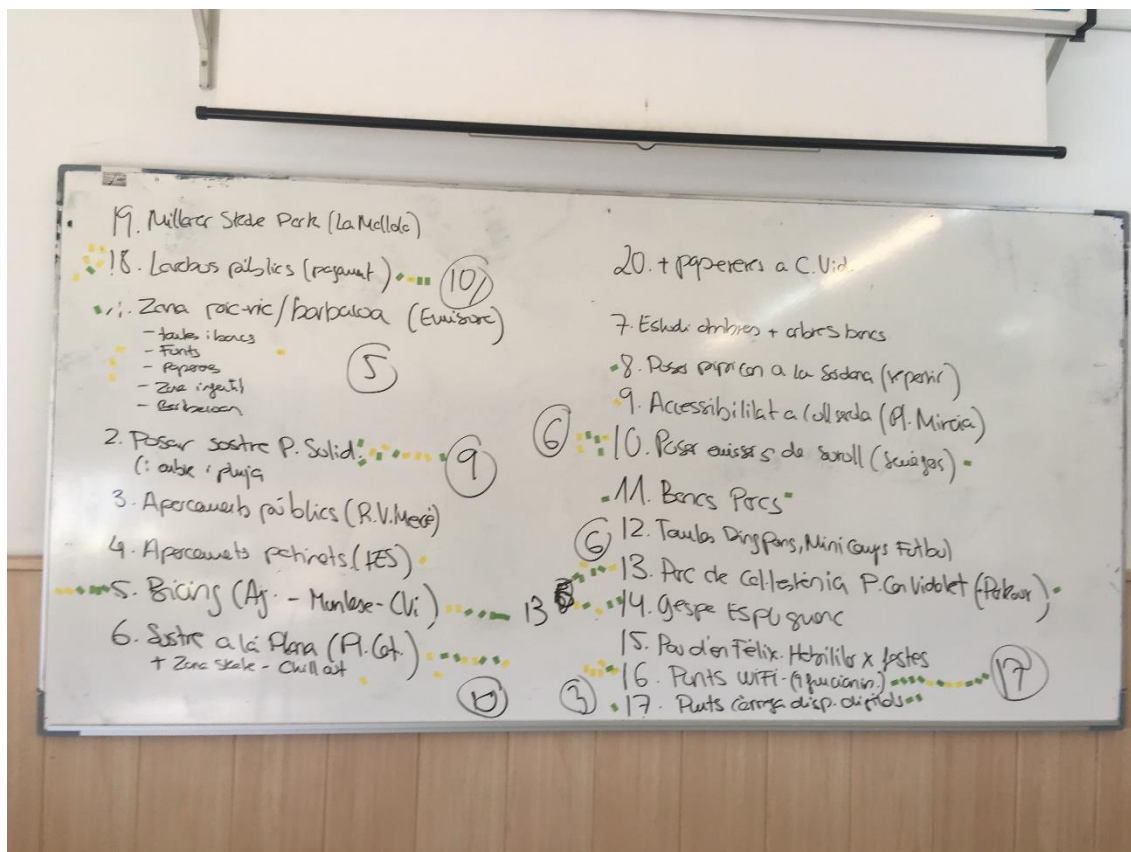 19. Millorar Skate Park (La Mallola)
18. Lavabos públics (pagament)
10
1. Zona pic-nic/barbacoa (Emissora)
- taules i bancs
- Fonts
- Papereres
- Zona infantil
- Barbacoes
5
2. Posar sostre P. Solid.
(: ombra i pluja
9
3. Aparcaments públics (R.V. Mercè)
4. Aparcaments patinets (IES)
5. Bicing (Aj. - Muntase - CVi)
13
6. Sostre a la Plana (Pl. Cat.)
+ Zona skate - Chill out
10
20. + papereres a C. Vid.
7. Estudi ombres + arbres bancs
8. Posar pipican a la Sardana (repartir)
9. Accessibilitat a Collserola (Pl. Mireia)
6
10. Posar emissors de soroll
11. Bancs Parcs
12. Taules Ping pong, Mini Camps Futbol
6
13. Parc de Cal·listènia P. Can Vidalet (+Parkour)
14. Gespa ESPLUGUINC
15. Pau d'en Fèlix. Habilitar x festes
16. Punts WIFI
17
3
17. Punts càrrega disp. digitals